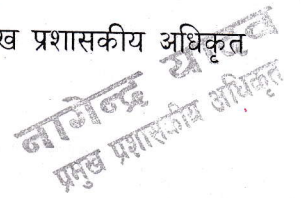 ख प्रशासकीय अधिकृत
नागेन्द्र यादव
प्रमुख प्रशासकीय अधिकृत